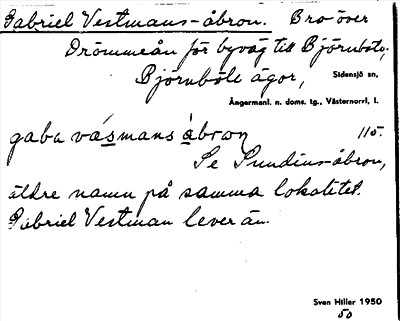 Gabriel Vestmans-åbron. Bro över
Drömmeån för byväg till Björnböle,
Björnböle ägor, Sidensjö sn,
Ångermanl. n. doms. tg., Västernorrl. l.
gaba vásmans åbron 115.
Se Sundins-åbron,
äldre namn på samma lokalitet.
Gabriel Vestman lever än.
Sven Hiller 1950
50